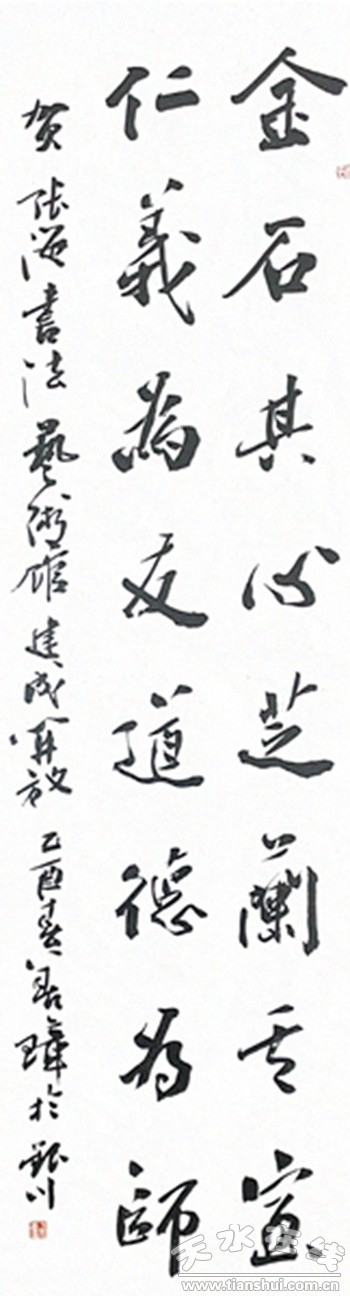 金石其心芝蘭其室
仁義為友道德為師
贺張海書法藝術館建成開放乙酉春善璋於銀川
天水在线
www.tianshui.com.cn